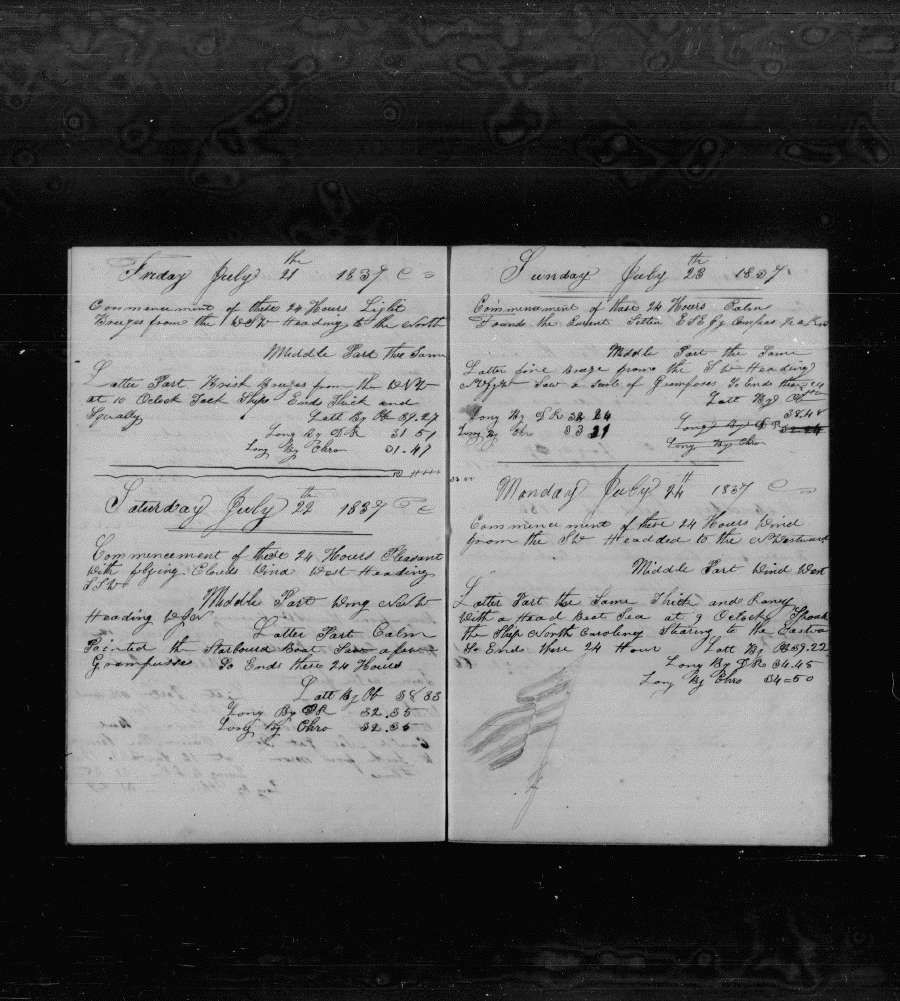 Friday July 21th 1837
Commencement of these 24 Hours Light
Breezes from the WSW Heading to the North
Middle Part the Same
Latter Part Brisk Breezes from the WNW
at 10 Oclock Tack Ship Ends Thick and
Squally Latt By Ob 39.27
Long By DR 31 51
Long By Chro 31.47
Saturday July 22th 1837
Commencement of these 24 Hours Pleasant
With flying Clouds Wind West Heading
SSW
Middle Part Wing
Heading
Latter Part Calm
Painted the Starboard Boat Saw a few
Grampusses So Ends these 24 Hours
Latt By Ob 38 33
Long By DR 32.35
Long By Chro 32.35
Sunday July 23th 1837
Commencement of these 24 Hours Calm
Founds the Current Settin ESE by Compass
Middle Part the Same
Latter fine Breeze from the SW Heading
Saw a Scole of Gramposes So Ends these 24
Latt By Ob
38.48
Long By DR 32 24
Long By DR 32.24
Long By Chro 33 21
Long By Chro
Monday July 24th 1837
Commencement of these 24 Hours Wind
from the SW Headded to the NWestward
Middle Part Wind West
Latter Part the Same Thick and Raney
With a Head Beat Sea at 9 Oclock Spoak
the Ship North Caroliney Stearing to the Eastwa
So Ends these 24 Hour Latt By Ob 39.22
Long By DR 34.45
Long By Chro 34=50